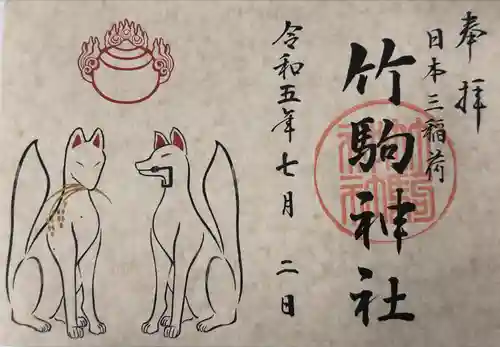 奉拝
日本三稲荷
竹駒神社
令和五年七月 二日